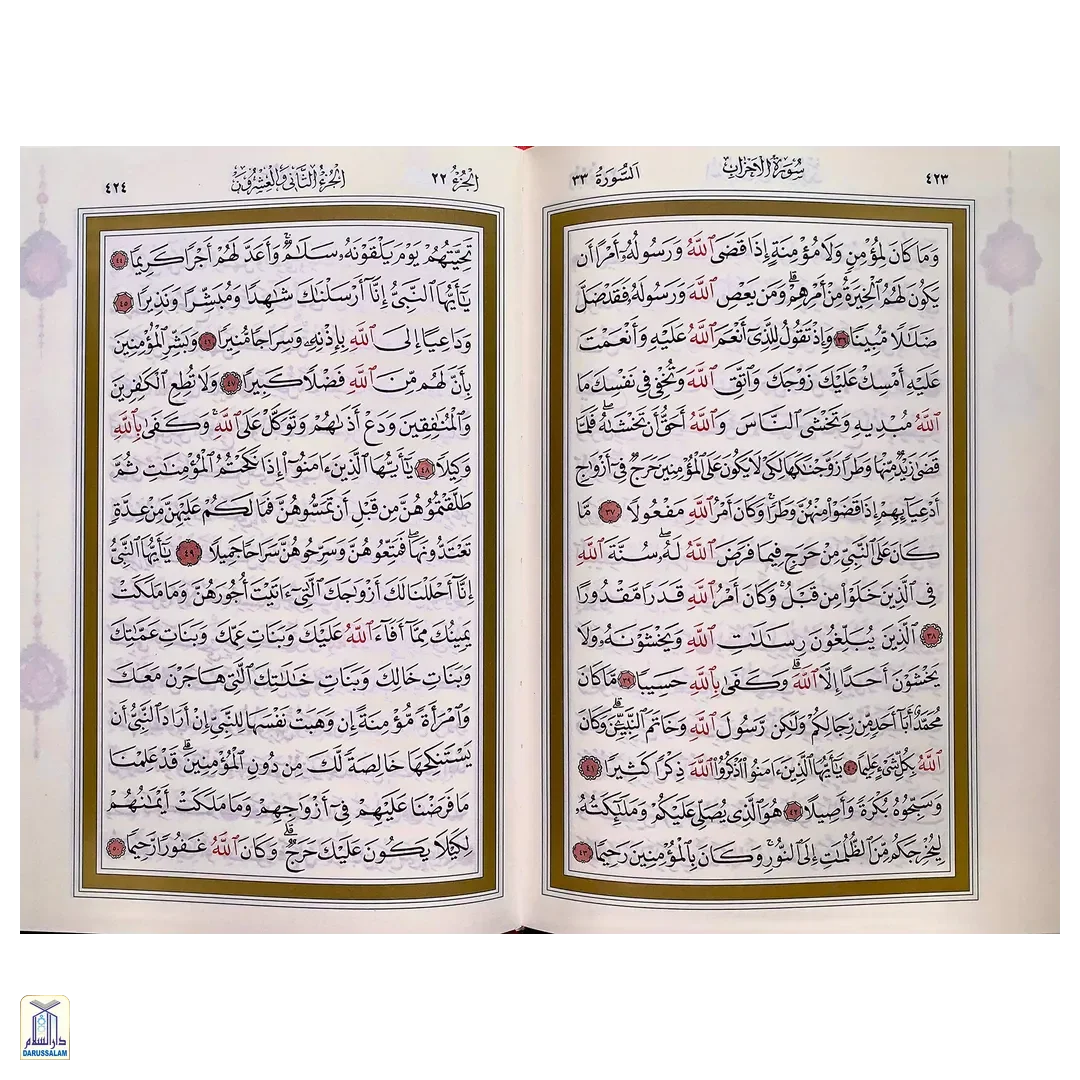 ٤٢٣ سُورَةُ الْأَحْزَابِ السُّورَةُ ٣٣
وَمَا كَانَ لِمُؤْمِنٍ وَلَا مُؤْمِنَةٍ إِذَا قَضَى ٱللَّهُ وَرَسُولُهُۥٓ أَمْرًا أَن
يَكُونَ لَهُمُ ٱلْخِيَرَةُ مِنْ أَمْرِهِمْۗ وَمَن يَعْصِ ٱللَّهَ وَرَسُولَهُۥ فَقَدْ ضَلَّ
ضَلَـٰلًا مُّبِينًا ٣٦ وَإِذْ تَقُولُ لِلَّذِىٓ أَنْعَمَ ٱللَّهُ عَلَيْهِ وَأَنْعَمْتَ
عَلَيْهِ أَمْسِكْ عَلَيْكَ زَوْجَكَ وَٱتَّقِ ٱللَّهَ وَتُخْفِى فِى نَفْسِكَ مَا
ٱللَّهُ مُبْدِيهِ وَتَخْشَى ٱلنَّاسَ وَٱللَّهُ أَحَقُّ أَن تَخْشَىٰهُۖ فَلَمَّا
قَضَىٰ زَيْدٌ مِّنْهَا وَطَرًا زَوَّجْنَـٰكَهَا لِكَىْ لَا يَكُونَ عَلَى ٱلْمُؤْمِنِينَ حَرَجٌ فِىٓ أَزْوَٰجِ
أَدْعِيَآئِهِمْ إِذَا قَضَوْا۟ مِنْهُنَّ وَطَرًاۚ وَكَانَ أَمْرُ ٱللَّهِ مَفْعُولًا ٣٧ مَّا
كَانَ عَلَى ٱلنَّبِىِّ مِنْ حَرَجٍ فِيمَا فَرَضَ ٱللَّهُ لَهُۥۖ سُنَّةَ ٱللَّهِ
فِى ٱلَّذِينَ خَلَوْا۟ مِن قَبْلُۚ وَكَانَ أَمْرُ ٱللَّهِ قَدَرًا مَّقْدُورًا
٣٨ ٱلَّذِينَ يُبَلِّغُونَ رِسَـٰلَـٰتِ ٱللَّهِ وَيَخْشَوْنَهُۥ وَلَا
يَخْشَوْنَ أَحَدًا إِلَّا ٱللَّهَۗ وَكَفَىٰ بِٱللَّهِ حَسِيبًا ٣٩ مَّا كَانَ
مُحَمَّدٌ أَبَآ أَحَدٍ مِّن رِّجَالِكُمْ وَلَـٰكِن رَّسُولَ ٱللَّهِ وَخَاتَمَ ٱلنَّبِيِّـۧنَۗ وَكَانَ
ٱللَّهُ بِكُلِّ شَىْءٍ عَلِيمًا ٤٠ يَـٰٓأَيُّهَا ٱلَّذِينَ ءَامَنُوا۟ ٱذْكُرُوا۟ ٱللَّهَ ذِكْرًا كَثِيرًا ٤١
وَسَبِّحُوهُ بُكْرَةً وَأَصِيلًا ٤٢ هُوَ ٱلَّذِى يُصَلِّى عَلَيْكُمْ وَمَلَـٰٓئِكَتُهُۥ
لِيُخْرِجَكُم مِّنَ ٱلظُّلُمَـٰتِ إِلَى ٱلنُّورِۚ وَكَانَ بِٱلْمُؤْمِنِينَ رَحِيمًا ٤٣
الْجُزْءُ ٢٢ الْجُزْءُ الثَّانِي وَالْعِشْرُونَ ٤٢٤
تَحِيَّتُهُمْ يَوْمَ يَلْقَوْنَهُۥ سَلَـٰمٌۚ وَأَعَدَّ لَهُمْ أَجْرًا كَرِيمًا ٤٤
يَـٰٓأَيُّهَا ٱلنَّبِىُّ إِنَّآ أَرْسَلْنَـٰكَ شَـٰهِدًا وَمُبَشِّرًا وَنَذِيرًا ٤٥
وَدَاعِيًا إِلَى ٱللَّهِ بِإِذْنِهِۦ وَسِرَاجًا مُّنِيرًا ٤٦ وَبَشِّرِ ٱلْمُؤْمِنِينَ
بِأَنَّ لَهُم مِّنَ ٱللَّهِ فَضْلًا كَبِيرًا ٤٧ وَلَا تُطِعِ ٱلْكَـٰفِرِينَ
وَٱلْمُنَـٰفِقِينَ وَدَعْ أَذَىٰهُمْ وَتَوَكَّلْ عَلَى ٱللَّهِۚ وَكَفَىٰ بِٱللَّهِ
وَكِيلًا ٤٨ يَـٰٓأَيُّهَا ٱلَّذِينَ ءَامَنُوٓا۟ إِذَا نَكَحْتُمُ ٱلْمُؤْمِنَـٰتِ ثُمَّ
طَلَّقْتُمُوهُنَّ مِن قَبْلِ أَن تَمَسُّوهُنَّ فَمَا لَكُمْ عَلَيْهِنَّ مِنْ عِدَّةٍ
تَعْتَدُّونَهَاۖ فَمَتِّعُوهُنَّ وَسَرِّحُوهُنَّ سَرَاحًا جَمِيلًا ٤٩ يَـٰٓأَيُّهَا ٱلنَّبِىُّ
إِنَّآ أَحْلَلْنَا لَكَ أَزْوَٰجَكَ ٱلَّـٰتِىٓ ءَاتَيْتَ أُجُورَهُنَّ وَمَا مَلَكَتْ
يَمِينُكَ مِمَّآ أَفَآءَ ٱللَّهُ عَلَيْكَ وَبَنَاتِ عَمِّكَ وَبَنَاتِ عَمَّـٰتِكَ
وَبَنَاتِ خَالِكَ وَبَنَاتِ خَـٰلَـٰتِكَ ٱلَّـٰتِى هَاجَرْنَ مَعَكَ
وَٱمْرَأَةً مُّؤْمِنَةً إِن وَهَبَتْ نَفْسَهَا لِلنَّبِىِّ إِنْ أَرَادَ ٱلنَّبِىُّ أَن
يَسْتَنكِحَهَا خَالِصَةً لَّكَ مِن دُونِ ٱلْمُؤْمِنِينَۗ قَدْ عَلِمْنَا
مَا فَرَضْنَا عَلَيْهِمْ فِىٓ أَزْوَٰجِهِمْ وَمَا مَلَكَتْ أَيْمَـٰنُهُمْ
لِكَيْلَا يَكُونَ عَلَيْكَ حَرَجٌۗ وَكَانَ ٱللَّهُ غَفُورًا رَّحِيمًا ٥٠
دار السلام
DARUSSALAM